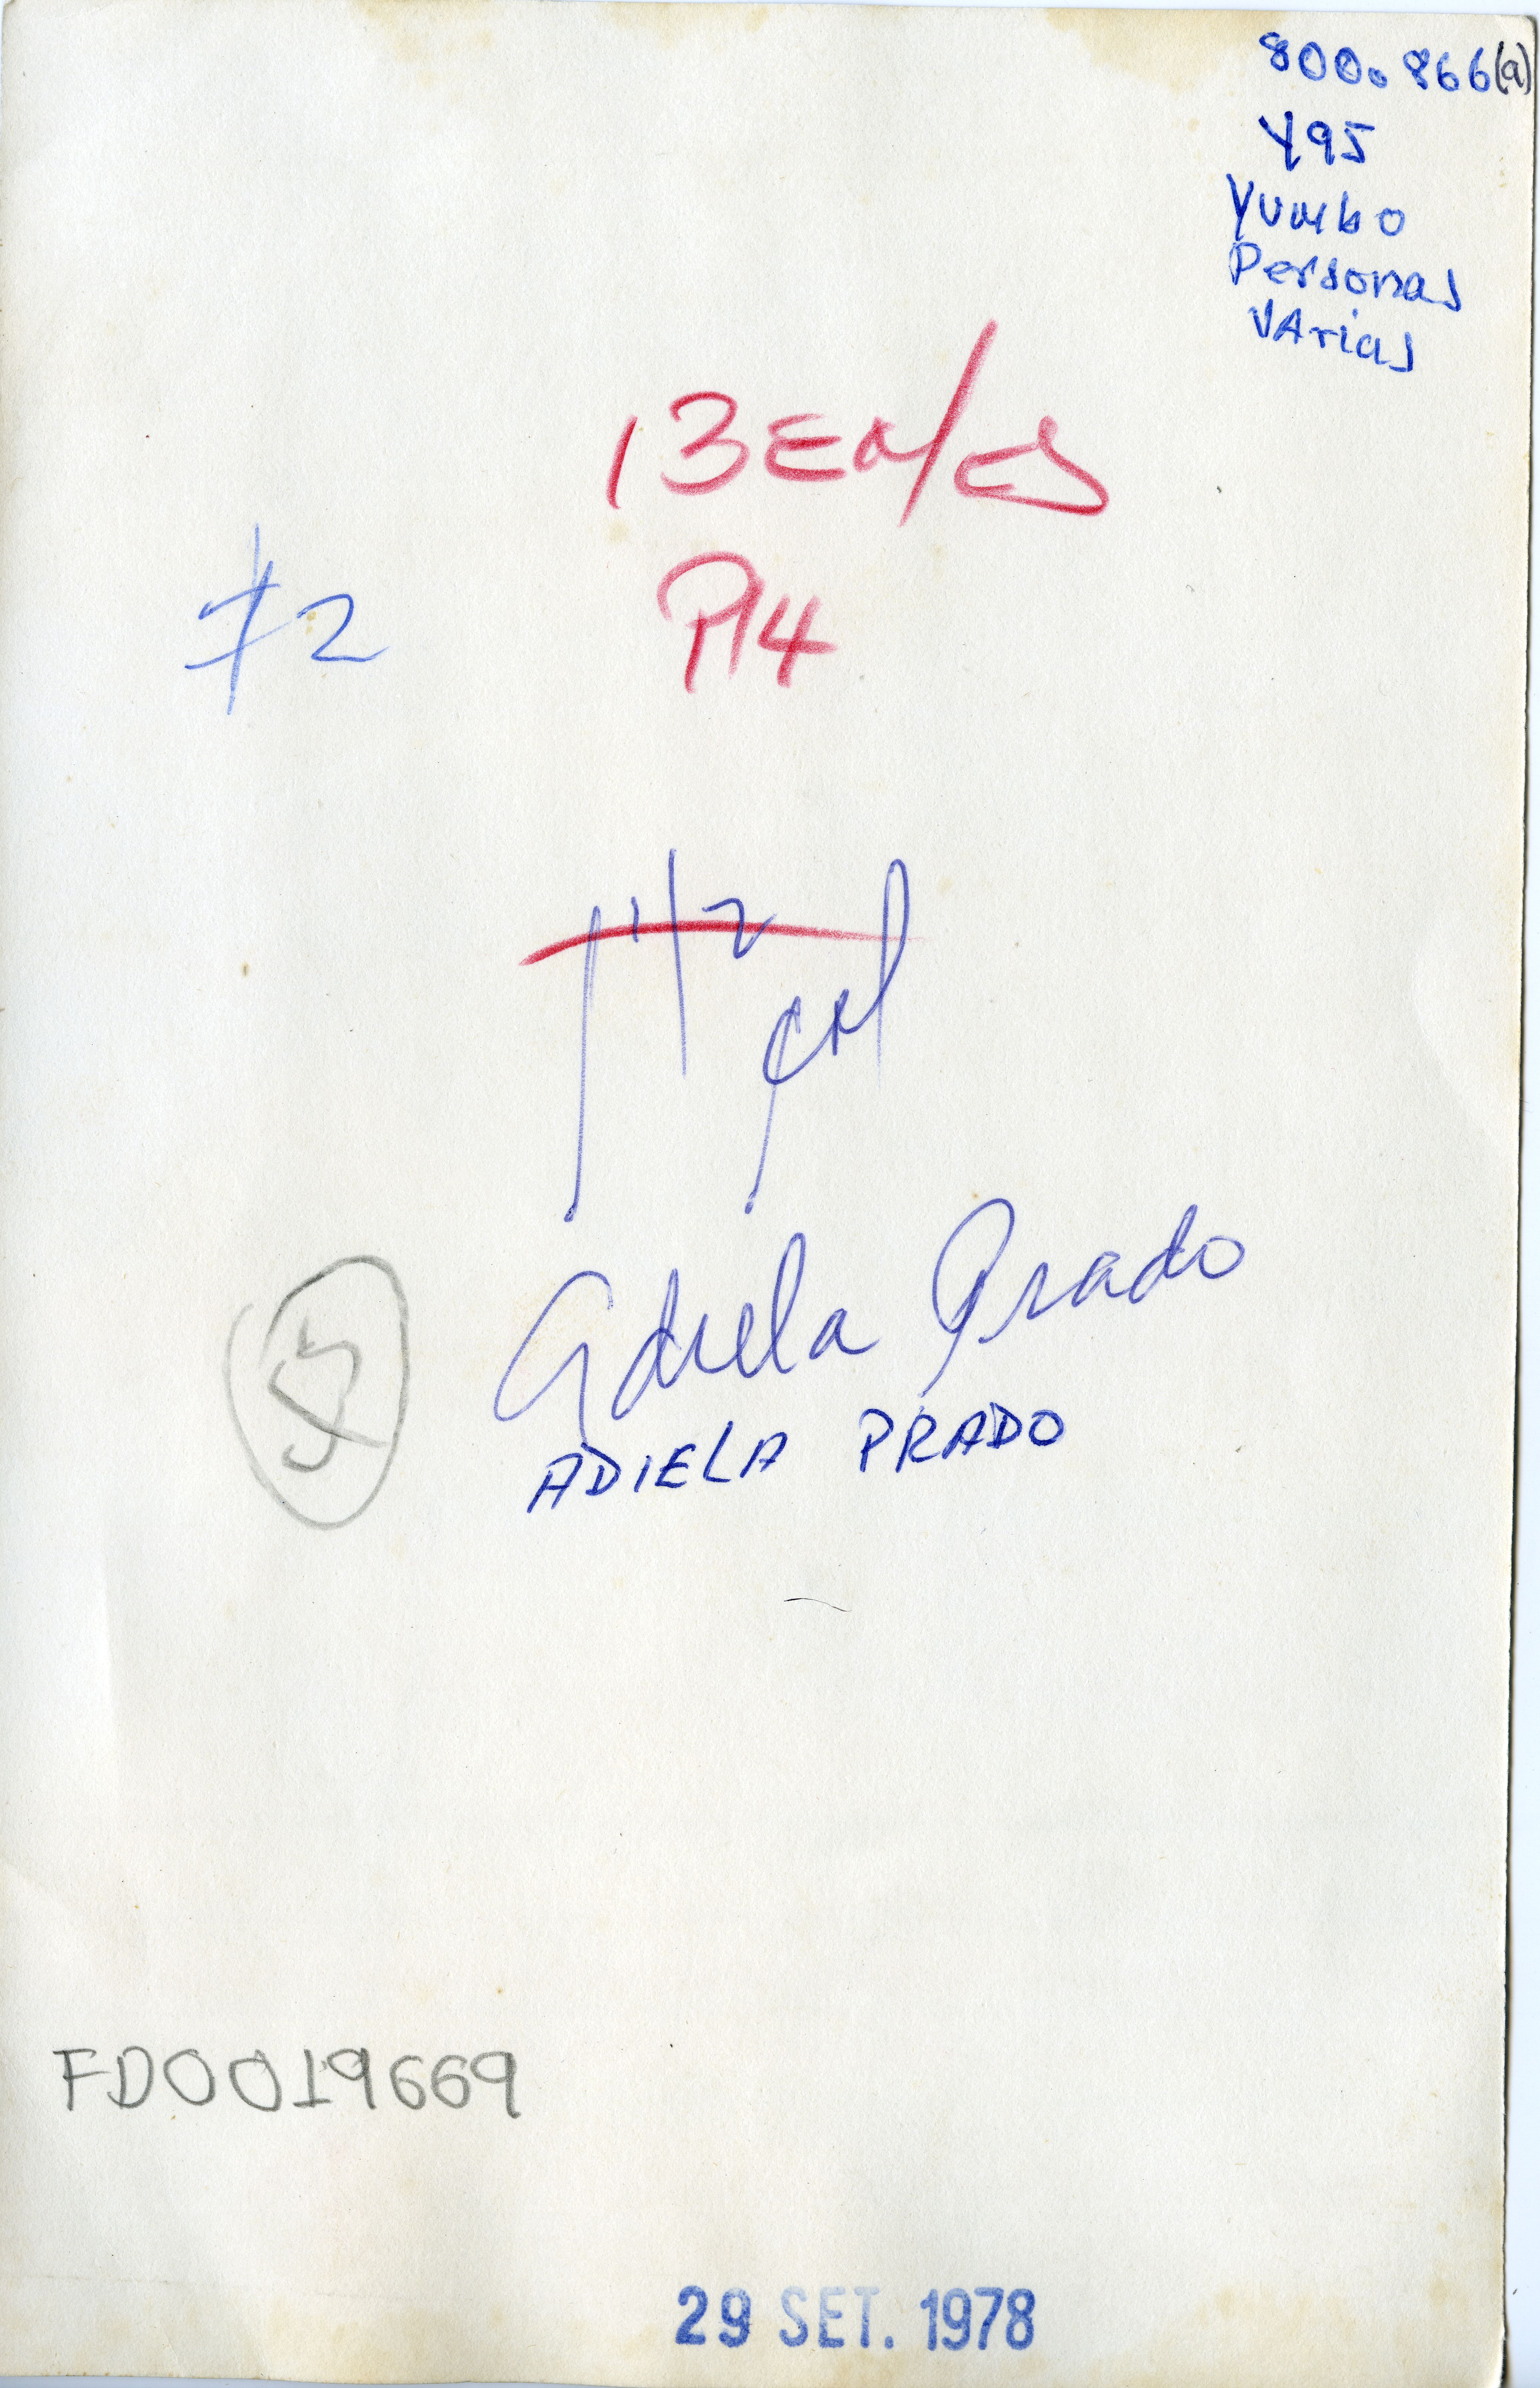 800.866(a)
Y95
Yumbo
Personas
VArias
13 En/
P14
#2
1 1/2
col
Adiela Prado
ADIELA PRADO
FD0019669
29 SET. 1978